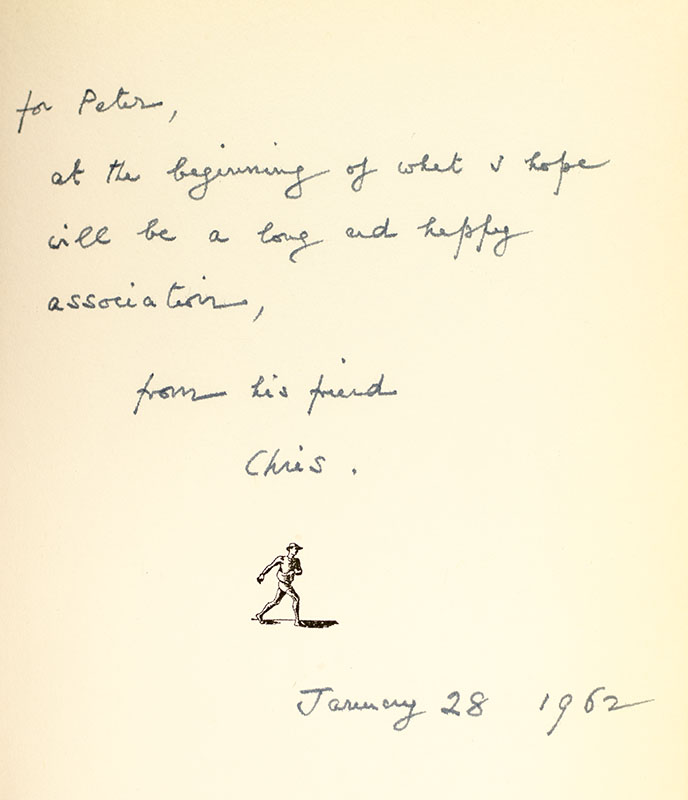 for Peter,
at the beginning of what I hope
will be a long and happy
association,
from his friend
Chris.
January 28 1962